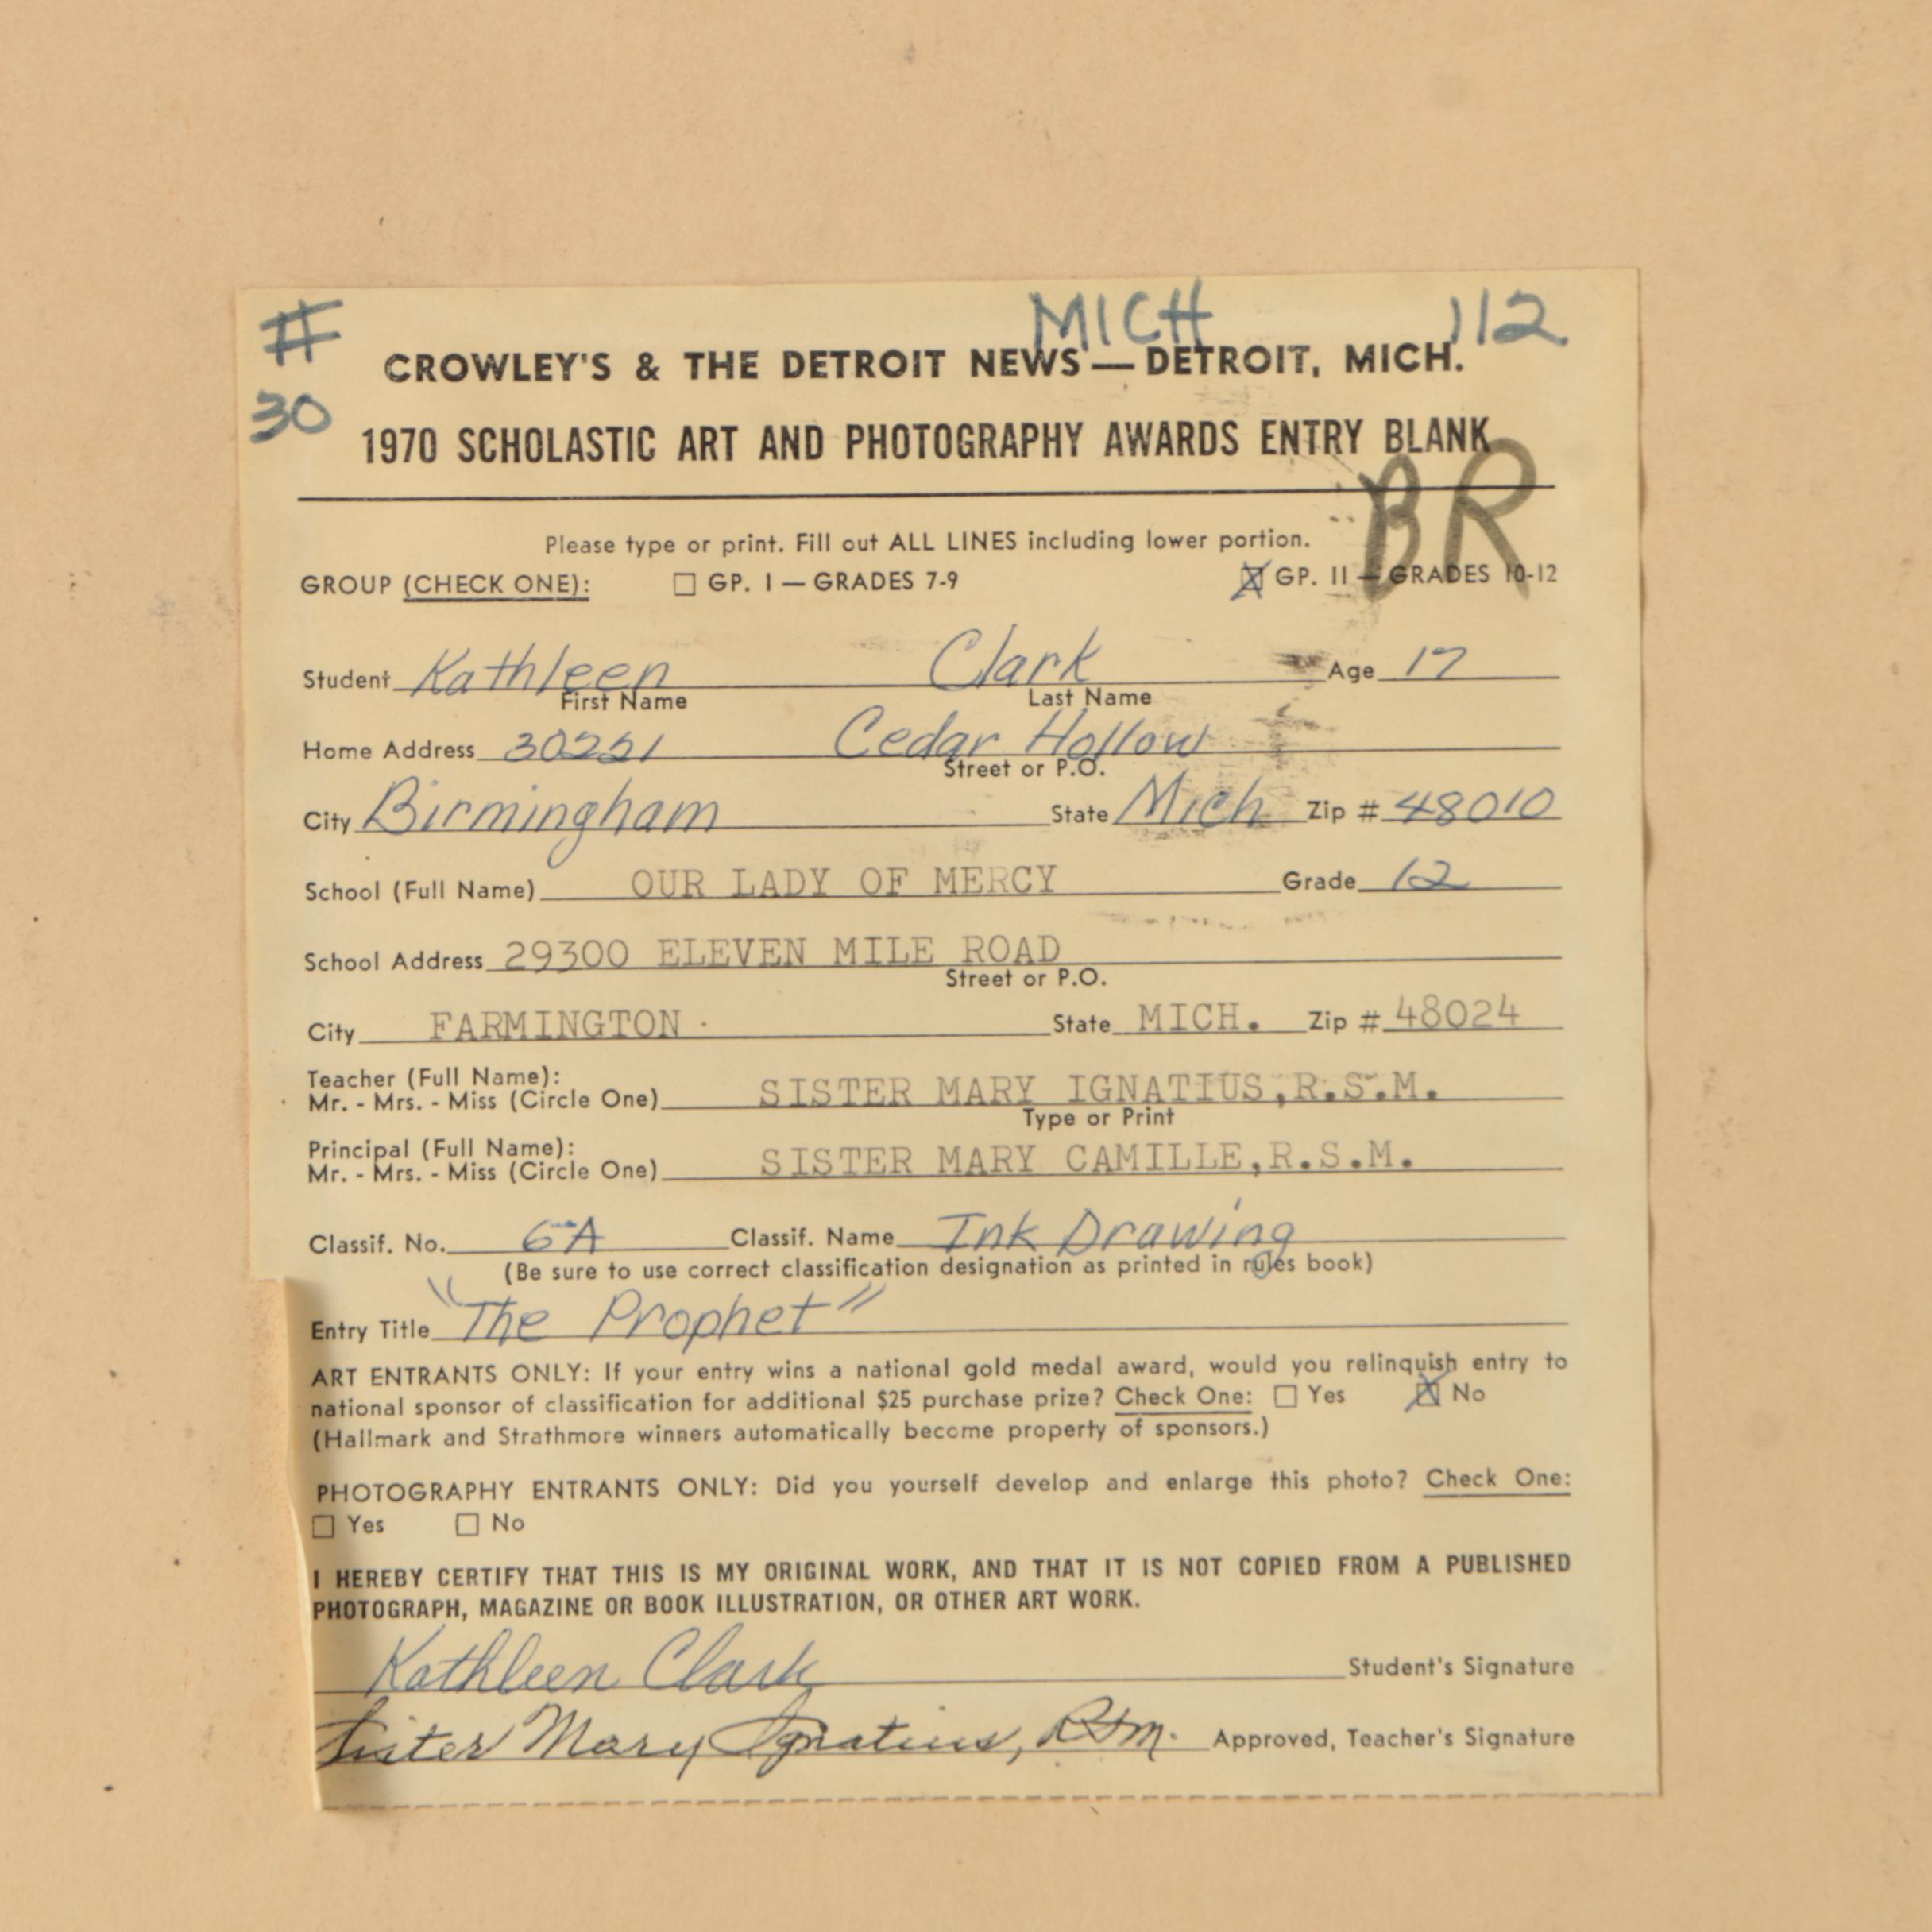 # MICH 112
30
CROWLEY'S & THE DETROIT NEWS — DETROIT, MICH.
1970 SCHOLASTIC ART AND PHOTOGRAPHY AWARDS ENTRY BLANK
BR
Please type or print. Fill out ALL LINES including lower portion.
GROUP (CHECK ONE): ☐ GP. I — GRADES 7-9 ☒ GP. II — GRADES 10-12
Student Kathleen Clark Age 17
First Name Last Name
Home Address 30251 Cedar Hollow
Street or P.O.
City Birmingham State Mich Zip # 48010
School (Full Name) OUR LADY OF MERCY Grade 12
School Address 29300 ELEVEN MILE ROAD
Street or P.O.
City FARMINGTON State MICH. Zip # 48024
Teacher (Full Name):
Mr. - Mrs. - Miss (Circle One) SISTER MARY IGNATIUS,R.S.M.
Type or Print
Principal (Full Name):
Mr. - Mrs. - Miss (Circle One) SISTER MARY CAMILLE,R.S.M.
Classif. No. 6A Classif. Name Ink Drawing
(Be sure to use correct classification designation as printed in rules book)
Entry Title "The Prophet"
ART ENTRANTS ONLY: If your entry wins a national gold medal award, would you relinquish entry to
national sponsor of classification for additional $25 purchase prize? Check One: ☐ Yes ☒ No
(Hallmark and Strathmore winners automatically become property of sponsors.)
PHOTOGRAPHY ENTRANTS ONLY: Did you yourself develop and enlarge this photo? Check One:
☐ Yes ☐ No
I HEREBY CERTIFY THAT THIS IS MY ORIGINAL WORK, AND THAT IT IS NOT COPIED FROM A PUBLISHED
PHOTOGRAPH, MAGAZINE OR BOOK ILLUSTRATION, OR OTHER ART WORK.
Kathleen Clark Student's Signature
Sister Mary Ignatius, RSM. Approved, Teacher's Signature